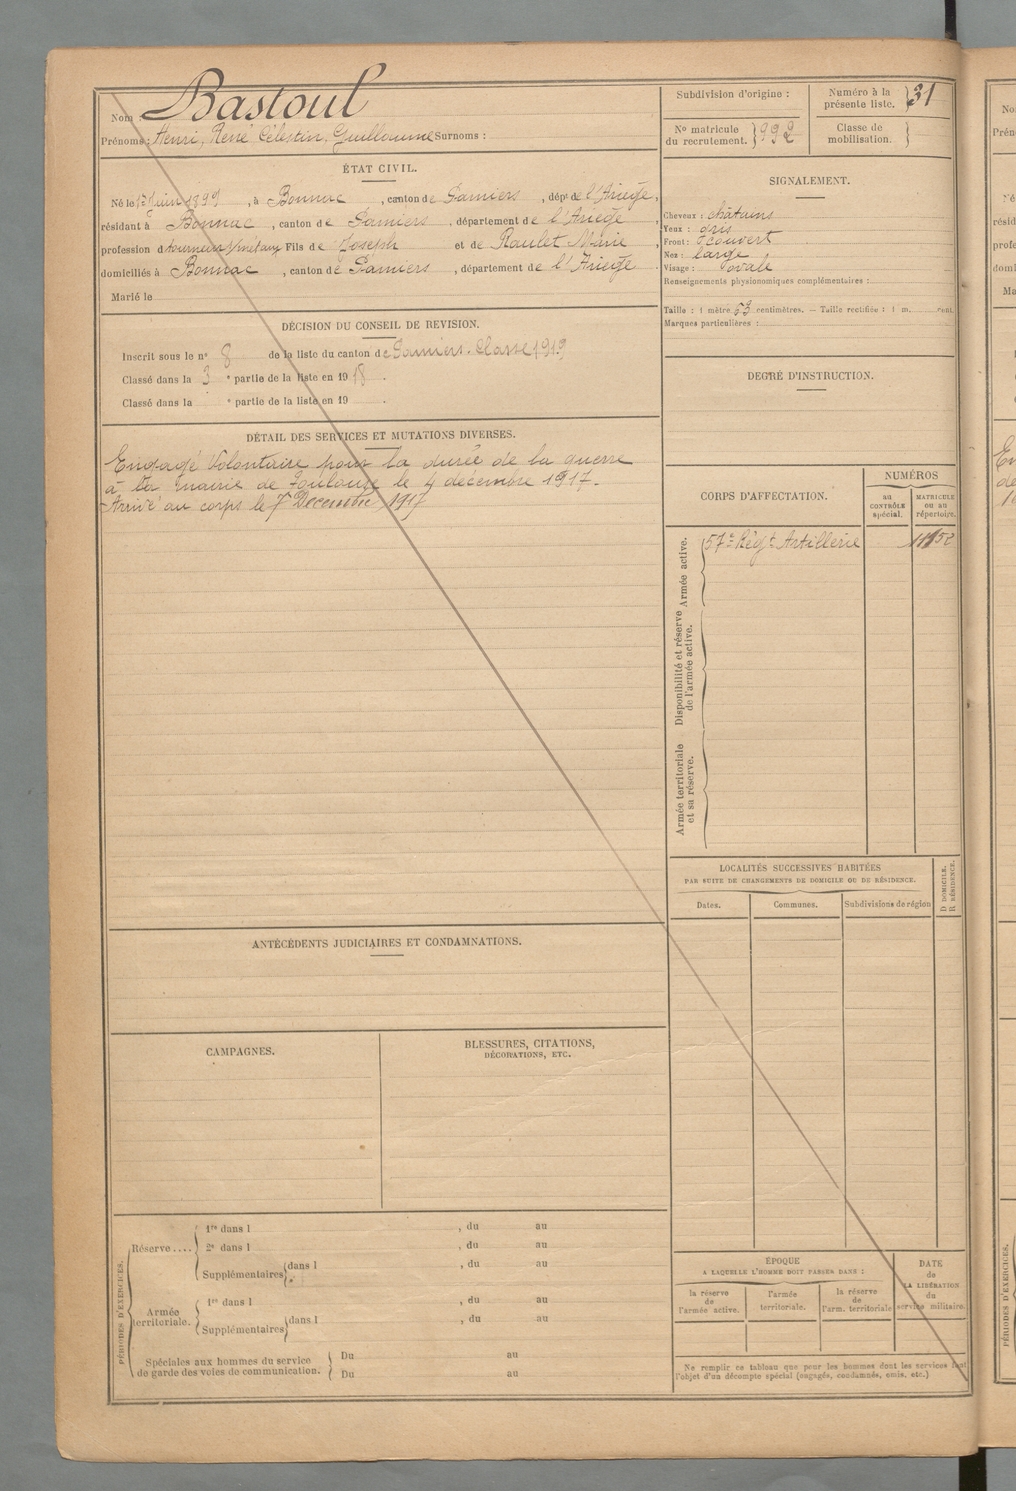 Nom Bastoul
Prénoms : Henri, René Célestin, Guillaume Surnoms :
Subdivision d'origine :
Numéro à la présente liste. } 31
No matricule du recrutement. } 992
Classe de mobilisation. }
ÉTAT CIVIL.
Né le 1er Juin 1899, à Bonnac, canton de Pamiers, dépt de l'Ariège,
résidant à Bonnac, canton de Pamiers, département de l'Ariège,
profession de tourneur s/métaux Fils de Joseph et de Raulet Marie,
domiciliés à Bonnac, canton de Pamiers, département de l'Ariège.
Marié le
SIGNALEMENT.
Cheveux : châtains
Yeux : gris
Front : découvert
Nez : large
Visage : ovale
Renseignements physionomiques complémentaires :
Taille : 1 mètre 63 centimètres. — Taille rectifiée : 1 m. cent.
Marques particulières :
DÉCISION DU CONSEIL DE REVISION.
Inscrit sous le n° 8 de la liste du canton de Pamiers. Classe 1919
Classé dans la 3 e partie de la liste en 1918.
Classé dans la e partie de la liste en 19 .
DEGRÉ D'INSTRUCTION.
DÉTAIL DES SERVICES ET MUTATIONS DIVERSES.
Engagé Volontaire pour la durée de la guerre
à la mairie de Toulouse le 4 décembre 1917.
Arrivé au corps le 7 Décembre 1917
CORPS D'AFFECTATION.
NUMÉROS
au CONTRÔLE spécial.
MATRICULE ou au répertoire.
Armée active.
57e Régt Artillerie
Disponibilité et réserve de l'armée active.
Armée territoriale et sa réserve.
LOCALITÉS SUCCESSIVES HABITÉES
PAR SUITE DE CHANGEMENTS DE DOMICILE OU DE RÉSIDENCE.
D. DOMICILE.
R. RÉSIDENCE.
Dates. Communes. Subdivisions de région
ANTÉCÉDENTS JUDICIAIRES ET CONDAMNATIONS.
CAMPAGNES.
BLESSURES, CITATIONS,
DÉCORATIONS, ETC.
PÉRIODES D'EXERCICES.
Réserve....
1re dans l , du au
2e dans l , du au
Supplémentaires dans l , du au
Armée territoriale.
1re dans l , du au
Supplémentaires dans l , du au
Spéciales aux hommes du service de garde des voies de communication.
Du au
Du au
ÉPOQUE
A LAQUELLE L'HOMME DOIT PASSER DANS :
la réserve de l'armée active.
l'armée territoriale.
la réserve de l'arm. territoriale
DATE de LA LIBÉRATION du service militaire.
Ne remplir ce tableau que pour les hommes dont les services font
l'objet d'un décompte spécial (engagés, condamnés, omis, etc.)